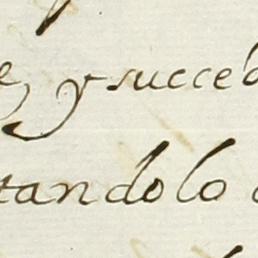 e, y succed
tandolo